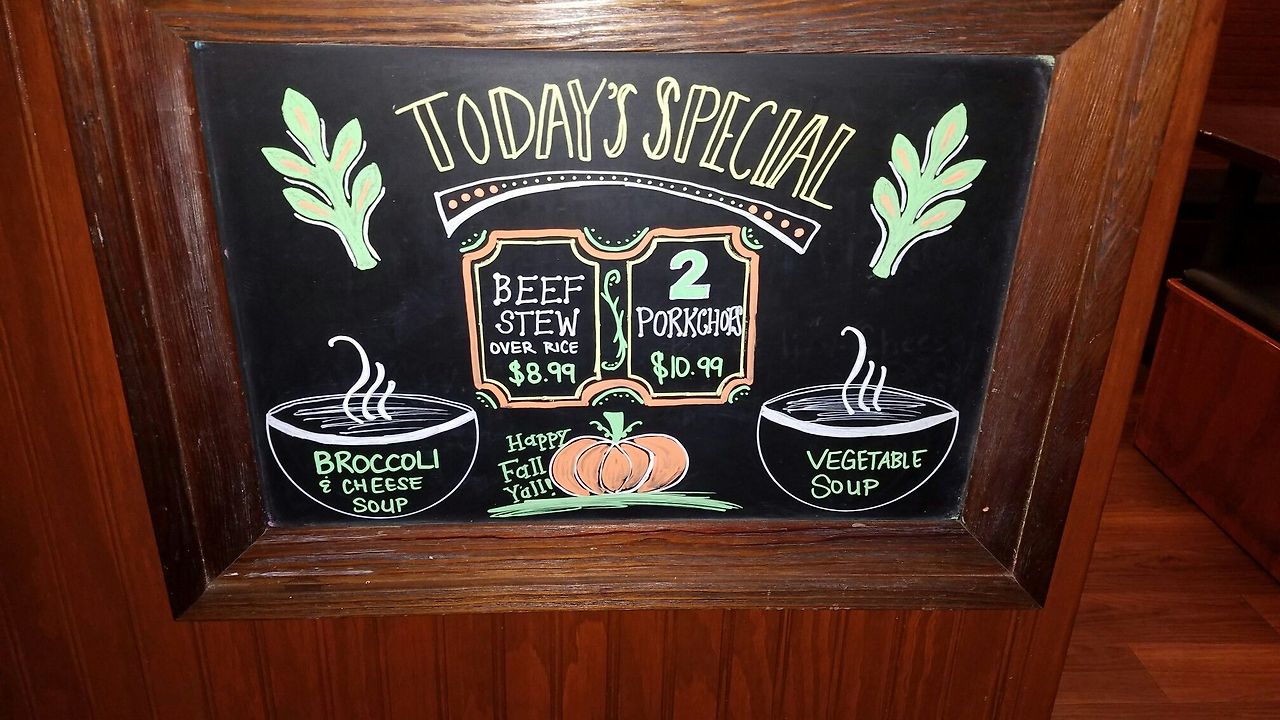 TODAY'S SPECIAL
BEEF
STEW
OVER RICE
$8.99
2
PORKCHOPS
$10.99
BROCCOLI
& CHEESE
SOUP
Happy
Fall
Yall!
VEGETABLE
SOUP